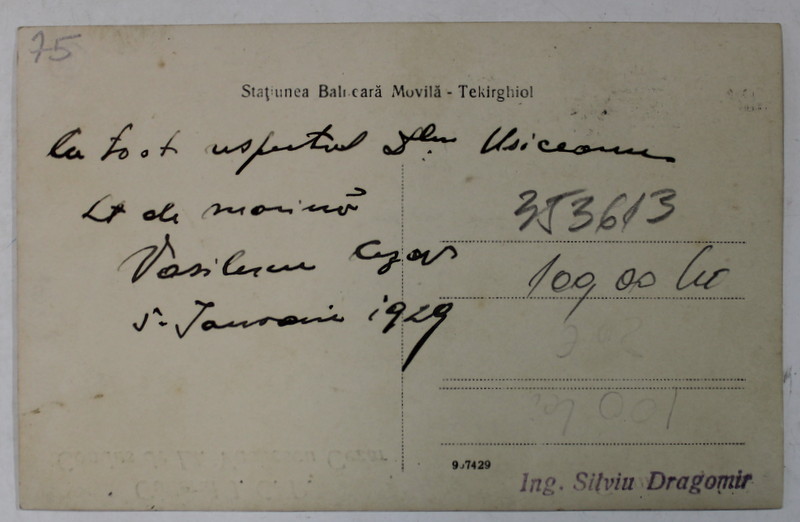 75
Stațiunea Balneară Movilă - Tekirghiol
Cu tot respectul Dlui
Lt de marină
Vasilescu Cezar
5 Ianuarie 1929
353613
109,00 lei
100 lei
907429
Ing. Silviu Dragomir